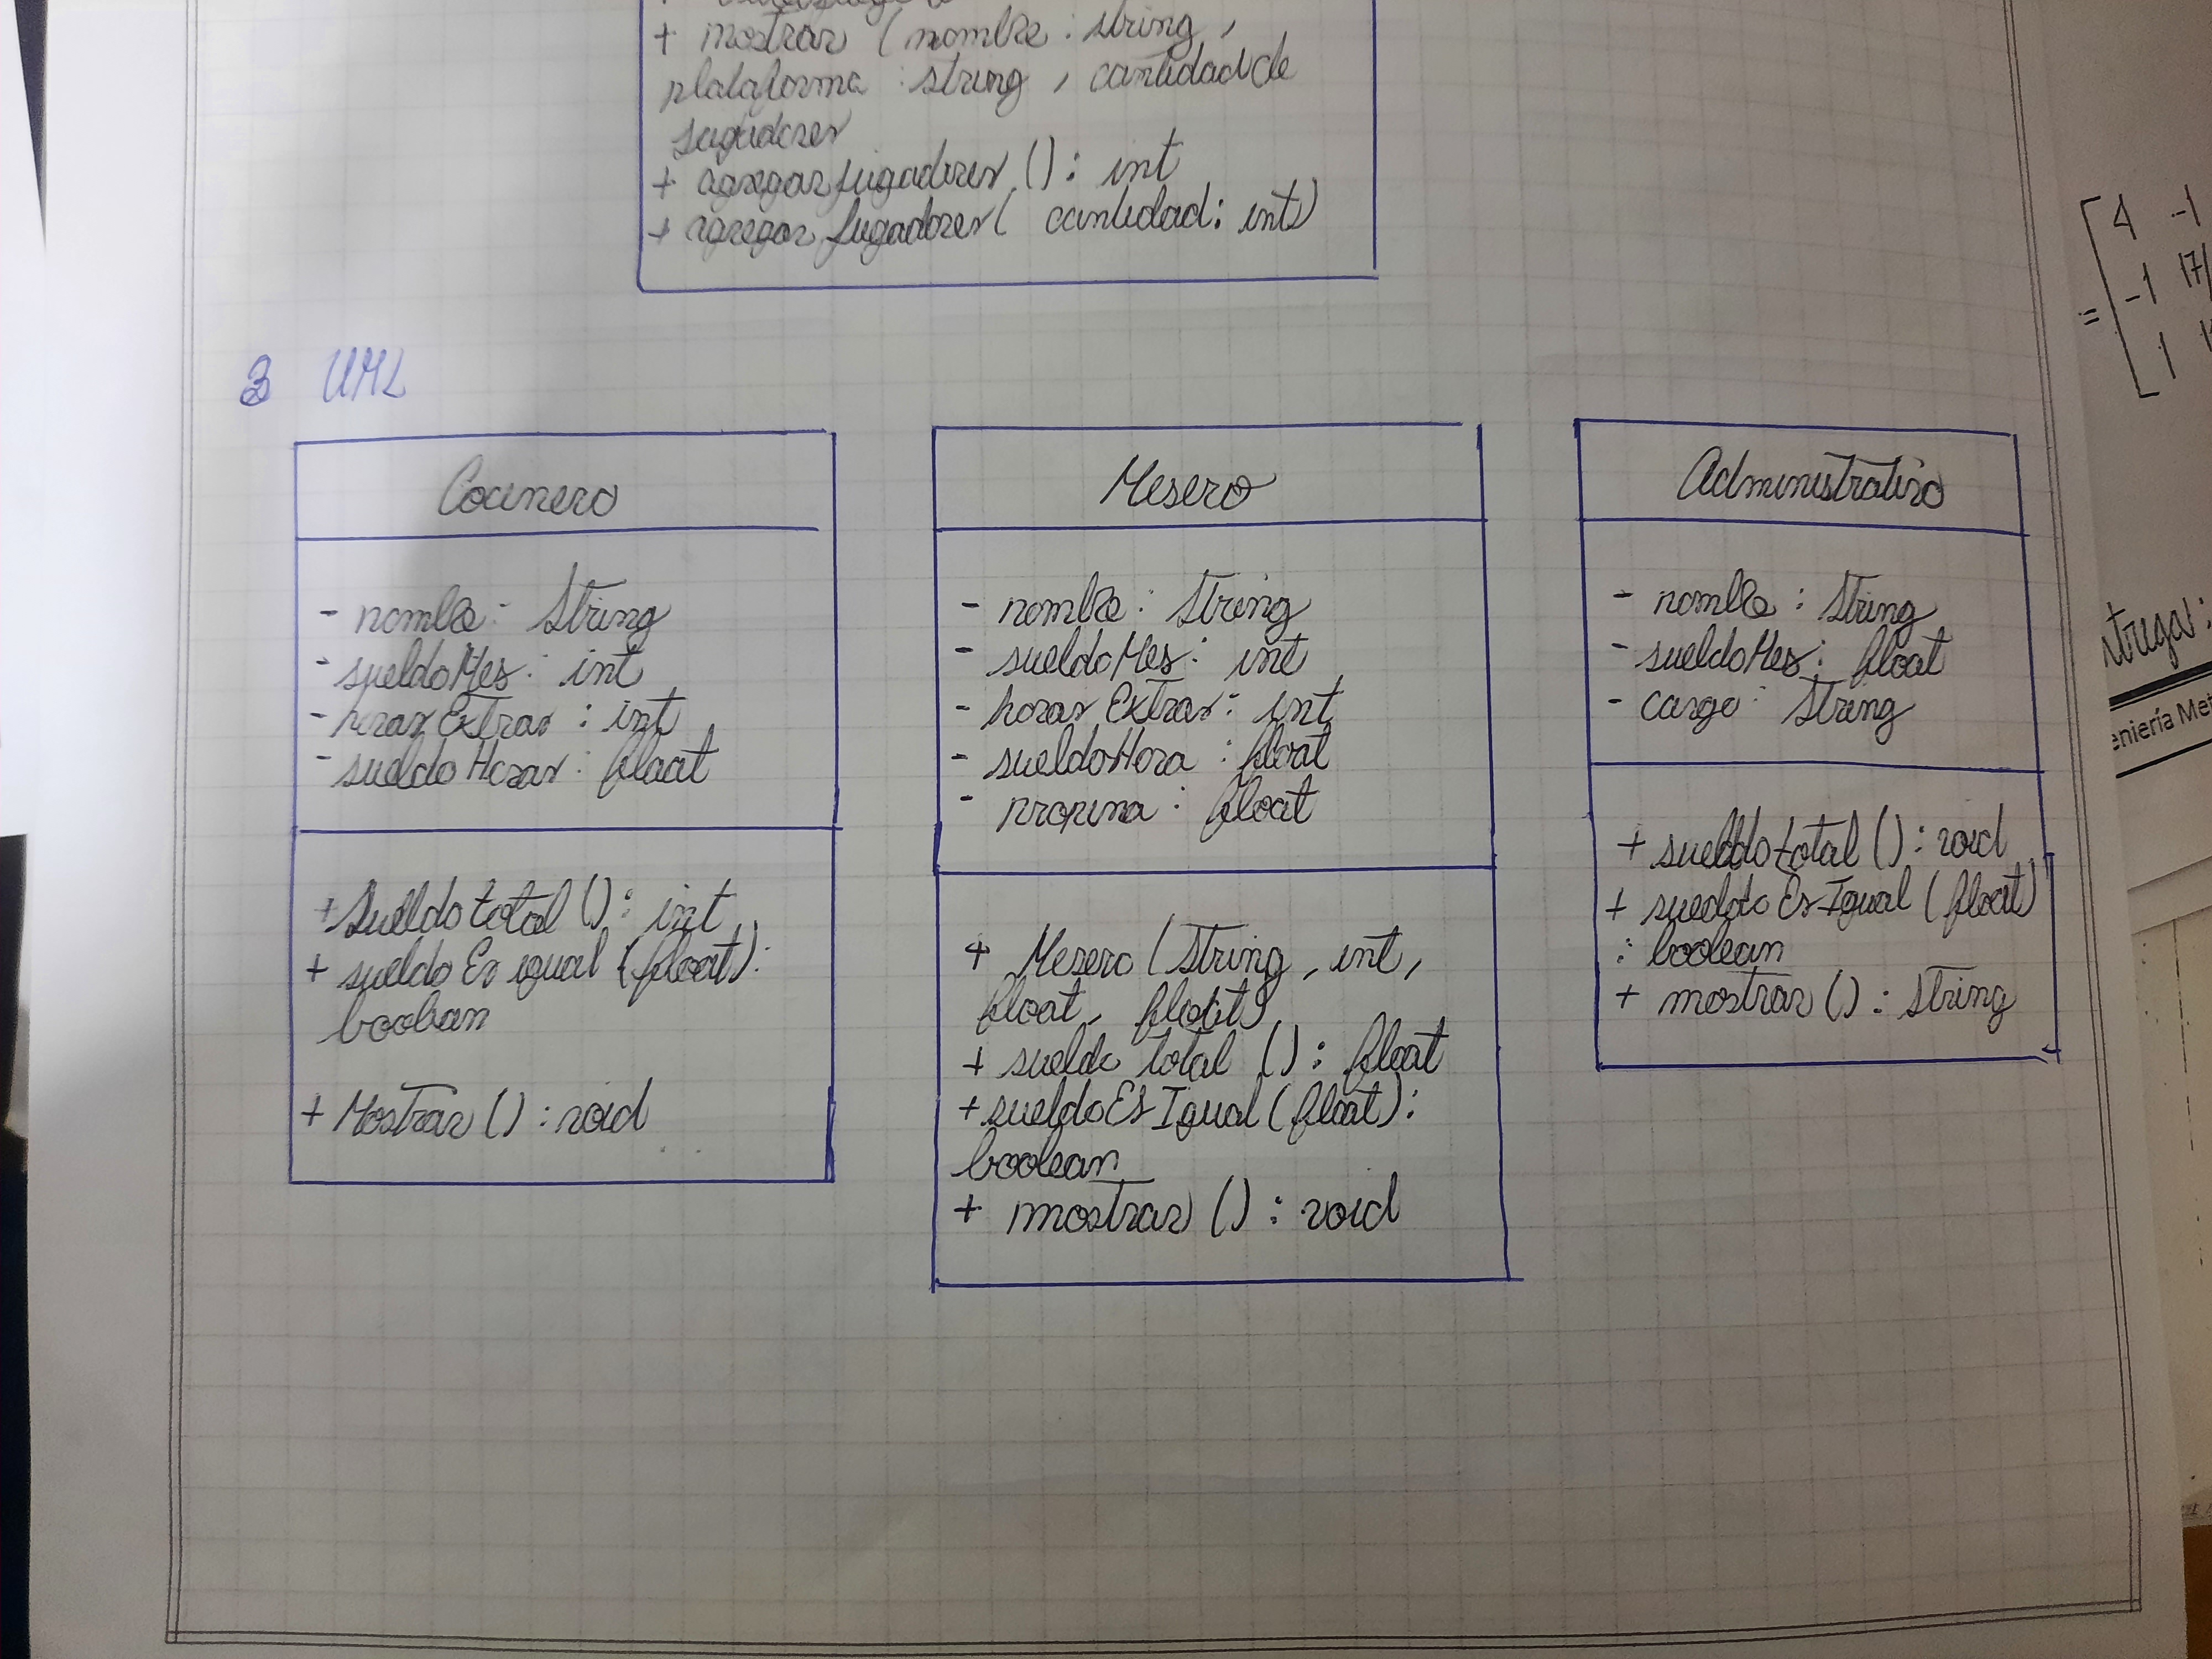 + mostrar (nombre: string,
plataforma: string, cantidadde
jugadores
+ agregarjugadores (): int
+ agregar jugadores( cantidad: int)
2 UML
Cocinero
- nombre: String
- sueldoMes: int
- horasExtras: int
- sueldoHora: float
+ sueldototal (): int
+ sueldoEs igual (float):
boolean
+ Mostrar (): void
Mesero
- nombre: String
- sueldoMes: int
- horas Extras: int
- sueldoHora: float
- propina: float
+ Mesero (String, int,
float float)
+ sueldo total (): float
+ sueldoEsIgual (float):
boolean
+ mostrar (): void
Administrativo
- nombre: String
- sueldoMes: float
- cargo: String
+ sueldototal (): void
+ sueldoEsIgual (float)
: boolean
+ mostrar (): String
eniería Me
4 -1
= -1 17/
1